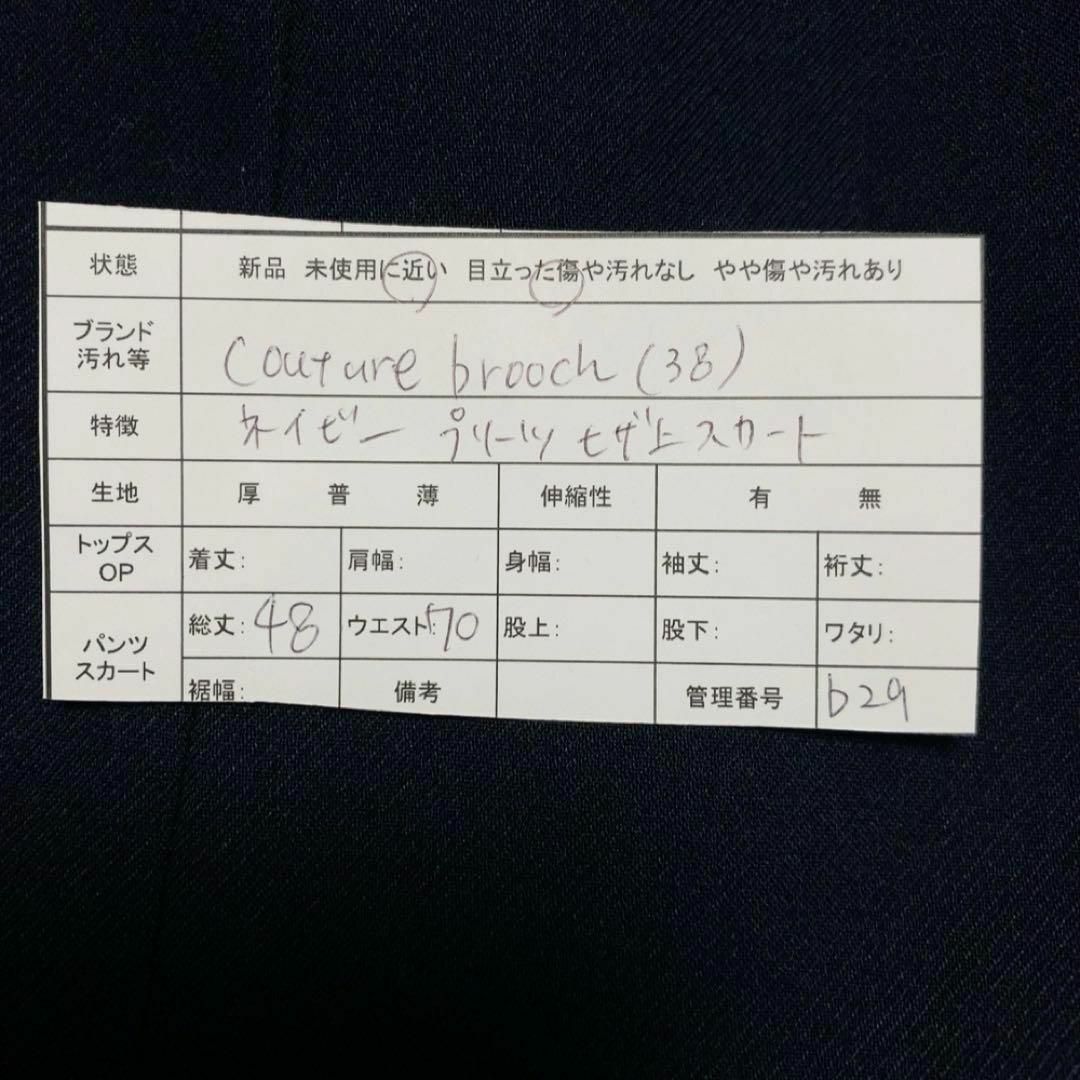 状態 新品 未使用に近い 目立った傷や汚れなし やや傷や汚れあり
ブランド
汚れ等 Couture brooch (38)
特徴 ネイビー プリーツ ヒザ上スカート
生地 厚 普 薄 伸縮性 有 無
トップス
OP 着丈: 肩幅: 身幅: 袖丈: 裄丈:
パンツ
スカート 総丈:48 ウエスト:70 股上: 股下: ワタリ:
裾幅: 備考 管理番号 b29